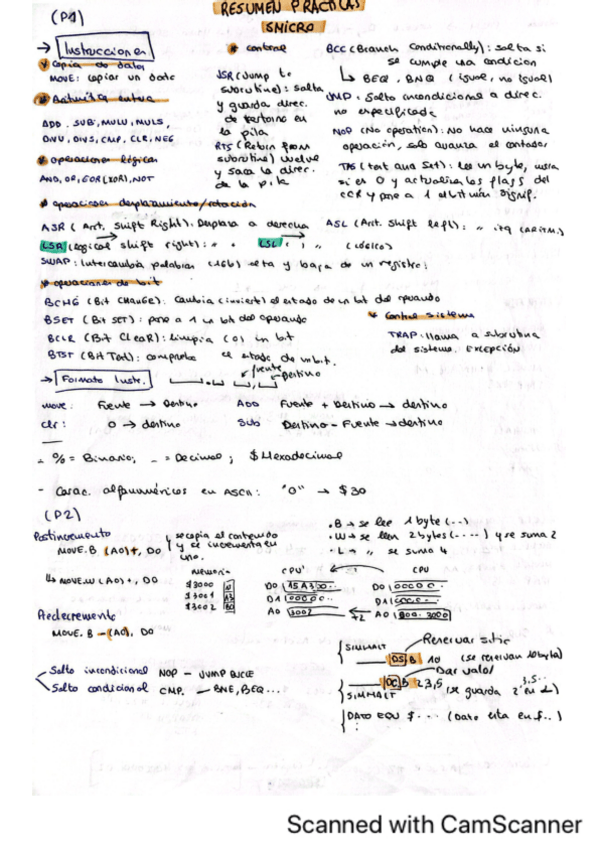 RESUMEN PRACTICAS
SMICRO
(P1)
→ Instrucciones
* Copia de datos
MOVE: copiar un dato
* Aritmética entera
ADD, SUB, MULU, MULS,
DIVU, DIVS, CMP, CLR, NEG
* operaciones lógicas
AND, OR, EOR(XOR), NOT
* control
JSR (Jump to
subroutine): salta
y guarda direc.
de retorno en
la pila
RTS (Return from
subroutine) vuelve
y saca la direc.
de la pila
BCC (Branch Conditionally): salta si
se cumple una condicion
↳ BEQ, BNQ (igual, no igual)
JMP: Salto incondicional a direc.
no especificada
NOP (No operation): No hace ninguna
operación, solo avanza el contador
TAS (Test and Set): Lee un byte, mira
si es 0 y actualiza los flags del
CCR y pone a 1 el bit más signif.
* operaciones desplazamiento/rotación
ASR (Arit. Shift Right). Desplaza a derecha
ASL (Arit. Shift left): " izq (ARITM.)
LSR (logical shift right): " "
LSL ( " ) " (lógico)
SWAP: Intercambia palabras (16b) alta y baja de un registro
* operaciones de bit
BCHG (Bit CHanGe): Cambia (invierte) el estado de un bit del operando
BSET (Bit SET): pone a 1 un bit del operando
BCLR (Bit CleaR): limpia (0) un bit
BTST (Bit Test): comprueba el estado de un bit.
* Control sistema
TRAP: llama a subrutina
del sistema. EXCEPCIÓN
→ Formato Instr.
fuente
destino
move: Fuente → Destino
ADD Fuente + Destino → destino
Clr: 0 → destino
SUB Destino - Fuente → destino
- % = Binario; _ = Decimal; $ Hexadecimal
- Carac. alfanuméricos en ASCII: "0" → $30
(P2)
Postincremento
MOVE.B (A0)+, D0
se copia el contenido
y se incrementa en
uno.
.B → se lee 1 byte (--)
.W → se leen 2 bytes (----) y se suma 2
.L → " se suma 4
↳ MOVE.W (A0)+, D0
Memoria
$3000
$3001
$3002
CPU'
D0 15A3...
D1 0000...
A0 3002
+2
CPU
D0 0000 0..
D1
A0 3000
Predecremento
MOVE.B -(A0), D0
Salto incondicional NOP - JUMP BUCLE
Salto condicional CMP. - BNE, BEQ...
SIMHALT
Reservar sitio
DS.B 10 (se reservan 10 byte)
Dar valor
DC.B 2,3,5
SIMHALT
DATO EQU $... (Dato esta en $..)
Scanned with CamScanner